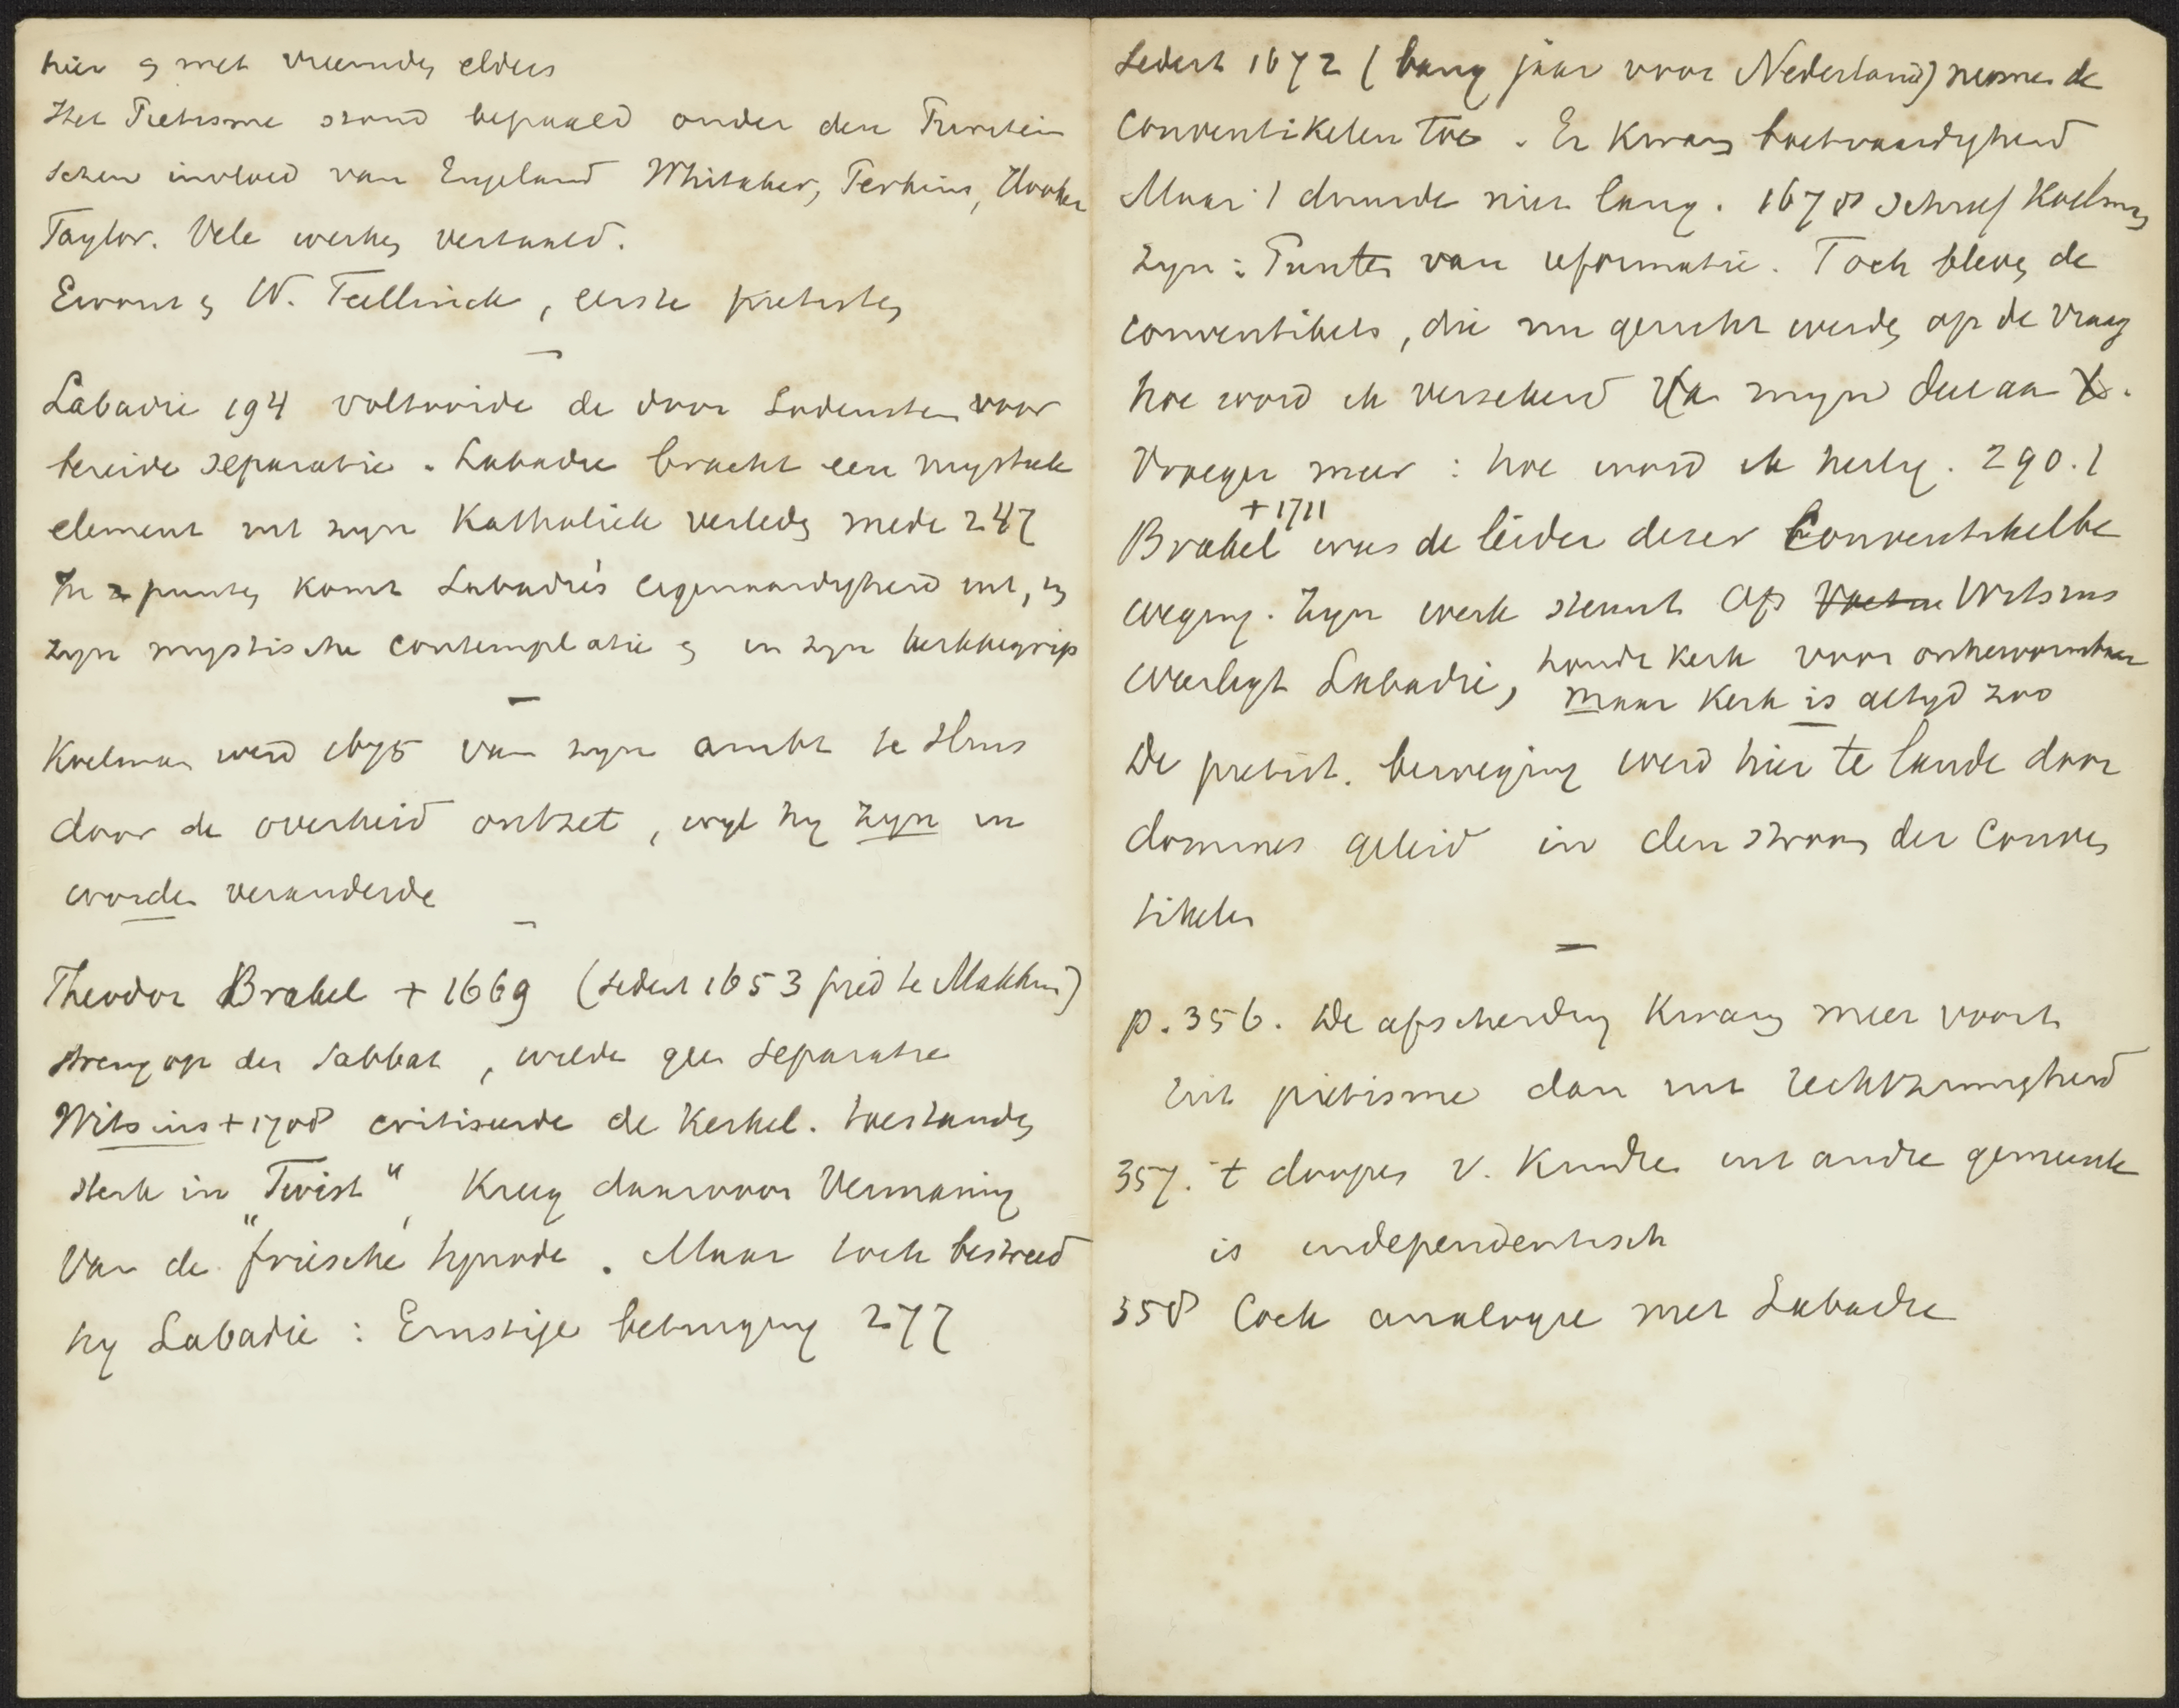 hier en met vreemden elders
Het Pietisme stond bepaald onder den Puritein
schen invloed van Engeland Whitaker, Perkins, Hooker
Taylor. Vele werken vertaald.
Ewout en W. Teellinck, eerste pietisten
Labadie 194 voltooide de door Lodenstein voor
bereide separatie. Labadie bracht een mystiek
element uit zijn Katholiek verleden mede 247
In 2 punten komt Labadie's eigenaardigheid uit, in
zijn mystische contemplatie en in zijn kerkbegrip
Koelman werd 1675 van zijn ambt te Sluis
door de overheid ontzet, wijl hij zijn in
worden veranderde
Theodor Brakel + 1669 (sedert 1653 pred te Makkum)
streng op den Sabbat, wilde geen separatie
Witsius + 1708 critiseerde de Kerkel. toestanden
sterk in "Twist", Kreeg daarvoor vermaning
van de friesche synode. Maar toch bestreed
hij Labadie: Ernstige betuiging 277
Sedert 1672 (bang jaar voor Nederland) namen de
Conventikelen toe. Er Kwam boetvaardigheid
Maar 't duurde niet lang. 1678 schreef Koelman
zijn: Punten van reformatie. Toch bleven de
conventikels, die nu gericht werden op de vraag
hoe word ik verzekerd van mijn deel aan X.
Vroeger meer: hoe word ik heilig. 290.1
+ 1711
Brakel was de leider dezer Conventikelbe
weging. Zijn werk steunt op Voetius Witsius
weerlegt Labadie, houdt kerk voor onhervormbaar
maar Kerk is altijd zoo
De pietist. beweging werd hier te lande door
dominés geleid in den stroom der Conven
tikelen
p. 356. De afscheiding Kwam meer voort
uit pietisme dan uit rechtzinnigheid
357. 't doopen v. Kindren uit andre gemeente
is independentisch
358 Cock analogie met Labadie